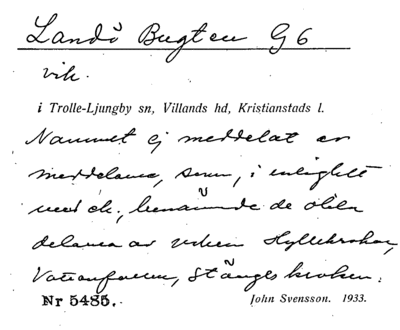 Landö Bugten G 6
vik.
i Trolle-Ljungby sn, Villands hd, Kristianstads l.
Namnet ej meddelat av
meddelarna, som, i enlighet
med ek., benämnde de olika
delarna av viken Hyllekroken,
Stångeskroken.
Nr 5485.
John Svensson. 1933.